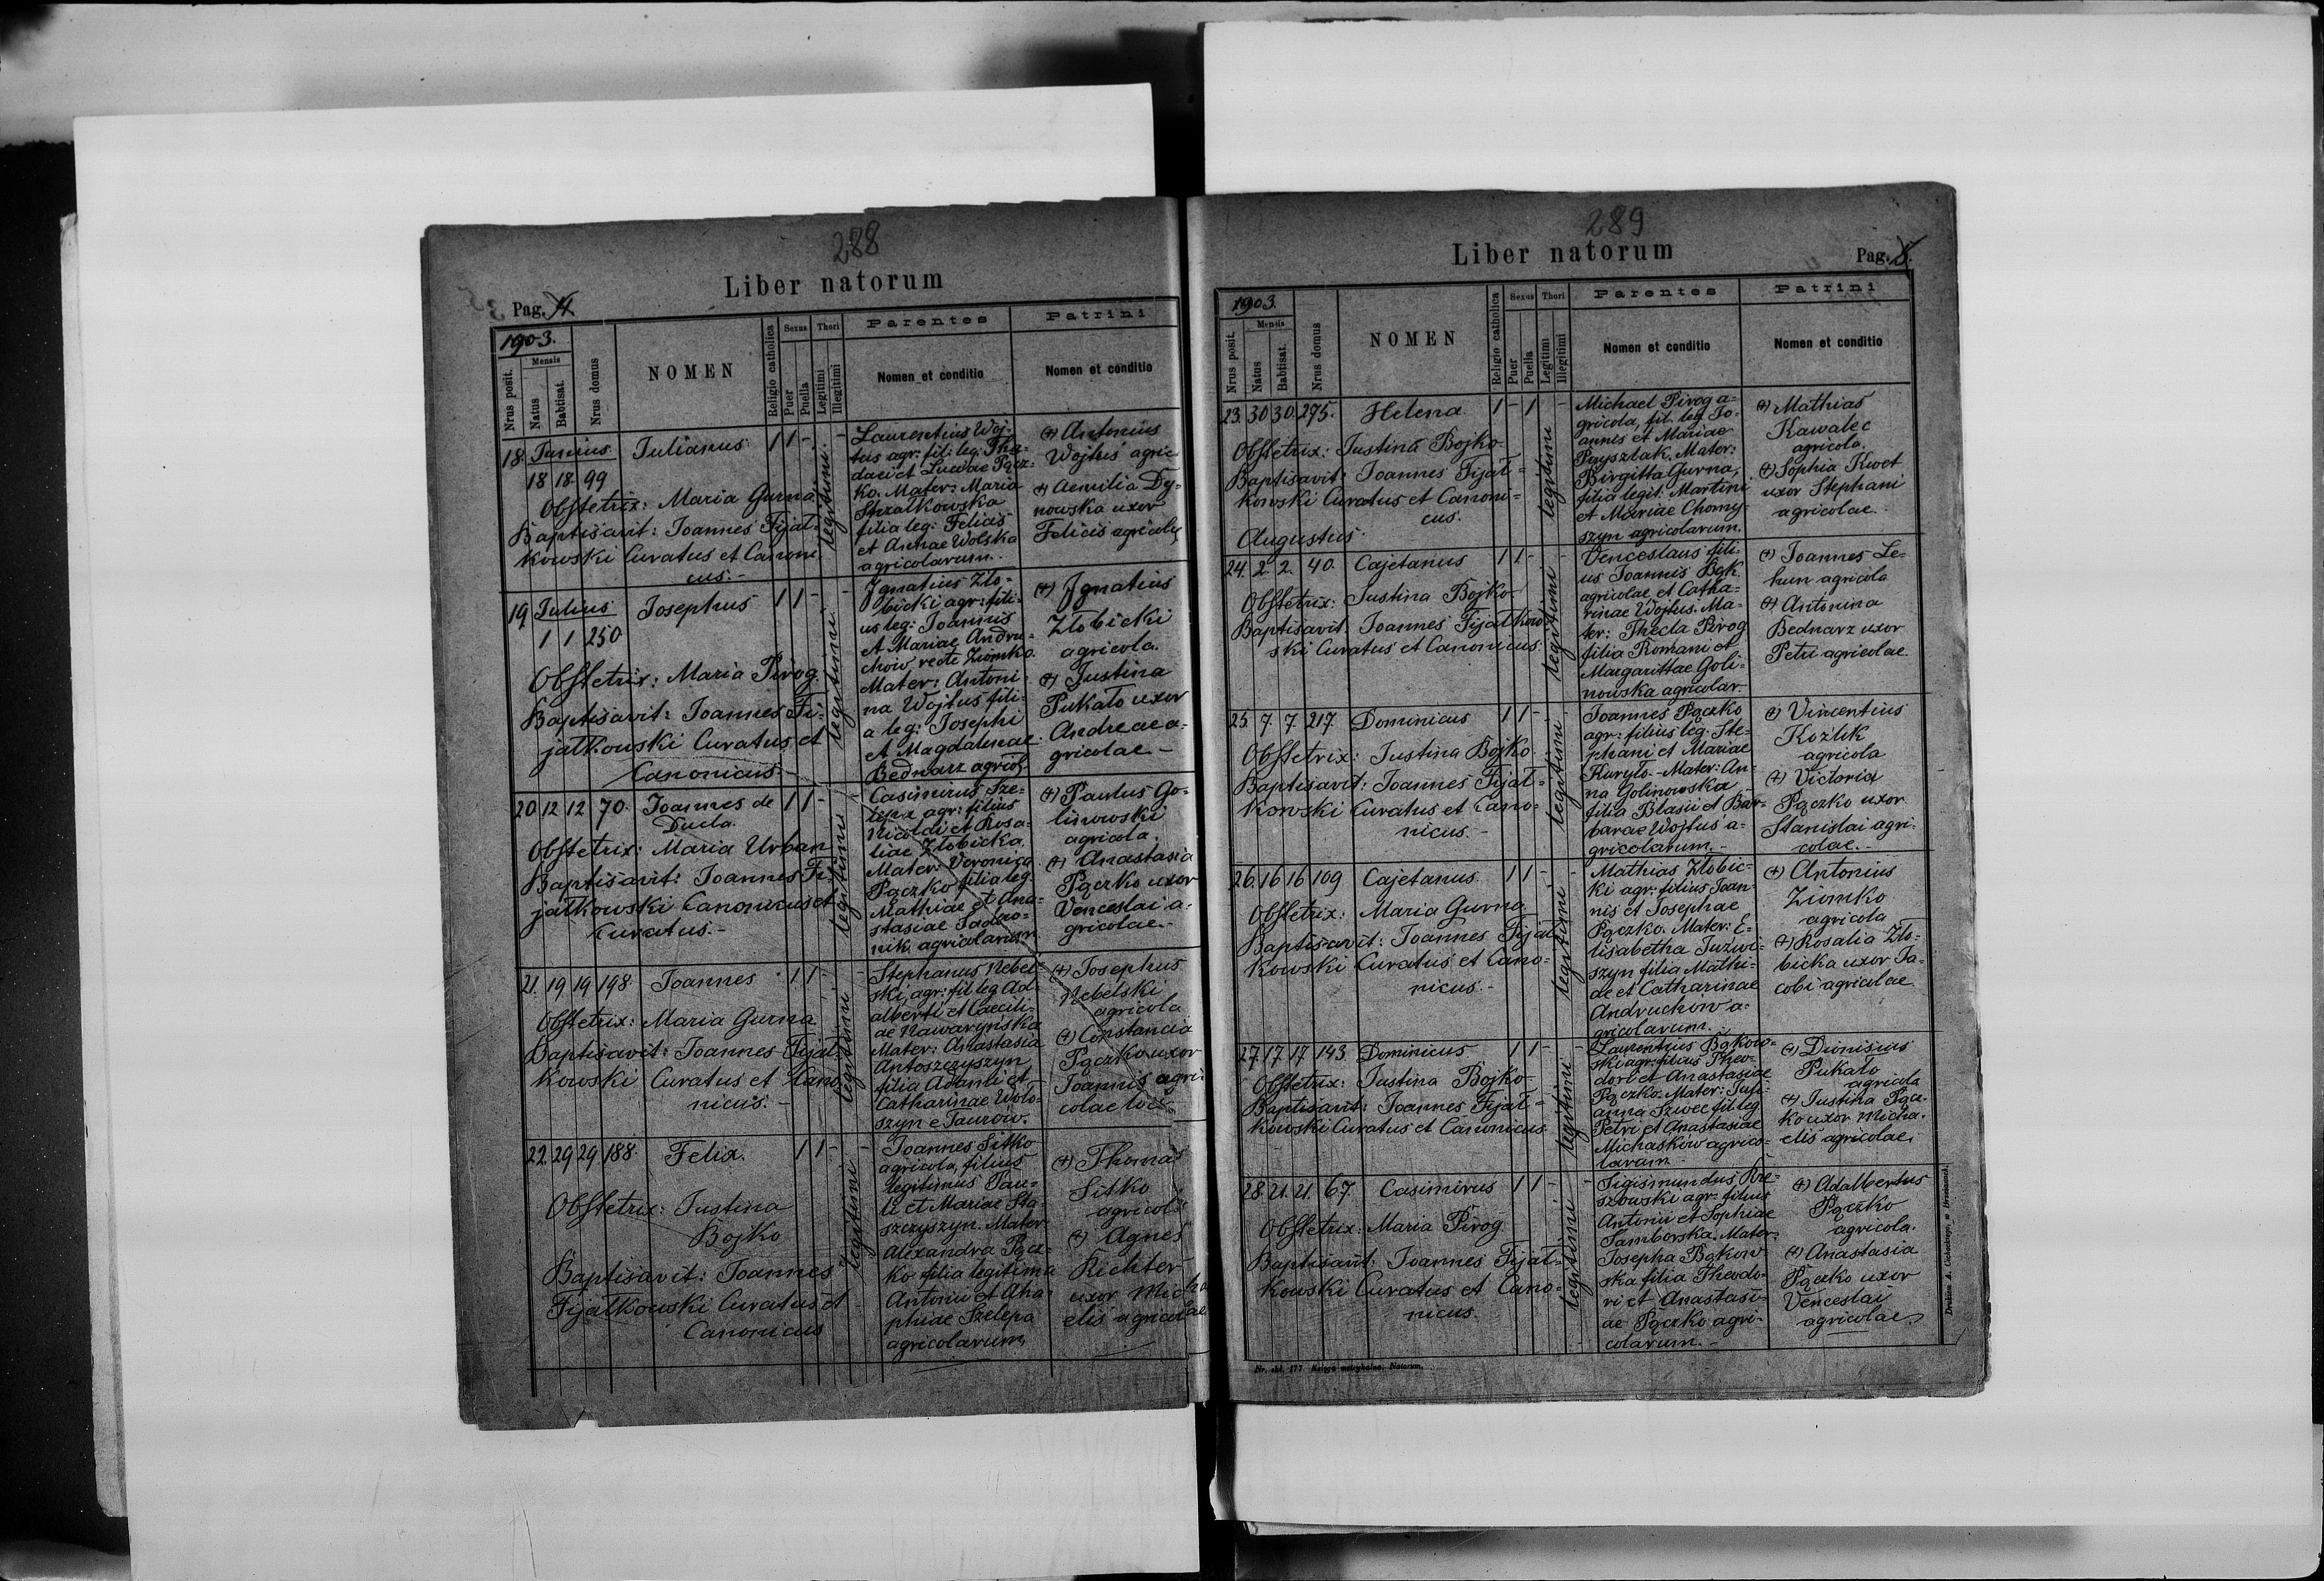 288
Liber natorum
Pag. 4
1903.
Mensis
Nrus posit.
Natus
Babtisat.
Nrus domus
NOMEN
Religio catholica
Sexus
Puer
Puella
Thori
Legitimi
Illegitimi
Parentes
Nomen et conditio
Patrini
Nomen et conditio
18. Junius Julianus 1 1 - -
18 18 99
Obstetrix: Maria Gurna
Baptisavit: Joannes Fijał=
kowski Curatus et Canoni
cus.-
legitimi
Laurentius Woj-
tus agr: fil: leg: Tha-
daei et Lucae Pącz-
ko. Mater: Maria
Strzałkowska
filia leg: Felicis
et Annae Wolska
agricolarum.
(+) Antonius
Wojtus agric
(+) Aemilia Dy=
nowska uxor
Felicis agricolae
19 Julius Josephus 1 1 - -
1 1 250
Obstetrix: Maria Pirog.
Baptisavit: Joannes Fi-
jałkowski Curatus et
Canonicus.-
legitimi
Ignatius Zło-
bicki agr: fili-
us leg: Joannis
et Mariae Andru-
chow recte Ziomko.
Mater: Antoni-
na Wojtus fili-
a leg: Josephi
et Magdalenae
Bednarz agricol.
(+) Ignatius
Złobicki
agricola.
(+) Justina
Pukało uxor
Andreae a-
gricolae -
20 12 12 70. Joannes de 1 1 - -
Ducla.
Obstetrix: Maria Urban
Baptisavit: Joannes Fi-
jałkowski Canonicus et
Curatus.-
legitimi
Casimirus Sze-
lepa agr: filius
Nicolai et Rosa-
liae Złobicka,
Mater: Veronica
Pączko filia leg
Mathiae et Ana-
stasiae Sadow-
nik agricolarum
(+) Paulus Go-
linowski
agricola.
(+) Anastasia
Pączko uxor
Venceslai a-
gricolae.-
21. 19 19 198. Joannes 1 1 - -
Obstetrix: Maria Gurna
Baptisavit: Joannes Fijał-
kowski Curatus et Cano-
nicus.-
legitimi
Stephanus Nebel-
ski, agr: fil leg Ad-
alberti et Caecili-
ae Nawaryńska
Mater: Anastasia
Antoszczyszyn
filia Adami et
Catharinae Woło-
szyn e Taurow.
(+) Josephus
Nebelski
agricola
(+) Constancia
Pączko uxor
Joannis agri-
colae loc-
22. 29 29 188. Felix. 1 1 - -
Obstetrix: Justina
Bojko
Baptisavit: Joannes
Fijałkowski Curatus et
Canonicus
legitimi
Joannes Sitko
agricola, filius
legitimus Pau-
li et Mariae Sta-
szczyszyn. Mater
Alexandra Pącz-
ko filia legitima
Antonii et Aga-
phiae Szelepa
agricolarum,
(+) Thomas
Sitko
agricola
(+) Agnes
Richter
uxor Micha
elis agricolae
289
Liber natorum
Pag. 5.
1903.
Mensis
Nrus posit.
Natus
Babtisat.
Nrus domus
NOMEN
Religio catholica
Sexus
Puer
Puella
Thori
Legitimi
Illegitimi
Parentes
Nomen et conditio
Patrini
Nomen et conditio
23. 30 30. 275. Helena 1 - 1 -
Obstetrix: Justina Bojko
Baptisavit: Joannes Fijał=
kowski Curatus et Canoni=
cus.
legitimi
Michael Pirog a=
gricola, fil. leg Jo-
annis et Mariae
Puysztak. Mater:
Birgitta Gurna,
filia legit: Martini
et Mariae Chomy-
szyn agricolarum.
(+) Mathias
Kawalec
agricola.
(+) Sophia Kwet
uxor Stephani
agricolae.
Augustus.
24. 2. 2. 40. Cajetanus 1 1 - -
Obstetrix: Justina Bojko
Baptisavit: Joannes Fijałkow
ski Curatus et Canonicus.
legitimi
Venceslaus fili-
us Joannis Bąk
agricolae et Catha=
rinae Wojtus. Ma-
ter: Thecla Pirog
filia Romani et
Margarittae Goli-
nowska agricolar.
(+) Joannes Le-
hun agricola
(+) Antonina
Bednarz uxor
Petri agricolae.
25 7. 7. 217. Dominicus 1 1 - -
Obstetrix: Justina Bojko.
Baptisavit: Joannes Fijał=
kowski Curatus et Cano=
nicus.-
legitimi
Joannes Pączko
agr: filius leg. Ste-
phani et Mariae
Kuryło - Mater: An-
na Golinowska
filia Blasii et Bar-
barae Wojtus a-
gricolarum.-
(+) Vincentius
Kozlik
agricola
(+) Victoria
Pączko uxor
Stanislai agri-
colae.-
26. 16 16 109 Cajetanus. 1 1 - -
Obstetrix: Maria Gurna
Baptisavit: Joannes Fijał
kowski Curatus et Cano=
nicus.-
legitimi
Mathias Złobic-
ki agr: filius Joan-
nis et Josephae
Pączko. Mater: E-
lisabetha Juzwi-
szyn filia Mathi-
ae et Catharinae
Andruchow a-
gricolarum.
(+) Antonius
Ziomko
agricola
(+) Rosalia Zło-
bicka uxor Ja-
cobi agricolae.
27. 17 17 143 Dominicus 1 1 - -
Obstetrix: Justina Bojko
Baptisavit: Joannes Fijał=
kowski Curatus et Canonicus
legitimi
Laurentius Bąkow-
ski agr: filius Theo-
dori et Anastasiae
Pączko. Mater: Juli-
anna Szwec fil leg
Petri et Anastasiae
Michasków agrico-
larum
(+) Dionisius
Pukało
agricola
(+) Justina Pącz-
ko uxor Micha-
elis agricolae.
28. 21. 21. 67. Casimirus 1 1 - -
Obstetrix: Maria Pirog
Baptisavit: Joannes Fijał=
kowski Curatus et Cano-
nicus.
legitimi
Sigismundus Rze-
szowski agr: filius
Antonii et Sophiae
Samborska. Mater:
Josepha Bąkow-
ska filia Theodo-
ri et Anastasi-
ae Pączko agri-
colarum.-
(+) Adalbertus
Pączko
agricola.
(+) Anastasia
Pączko uxor
Venceslai
agricolae.
Nr. skł. 177. Księga metrykalna. Natorum.